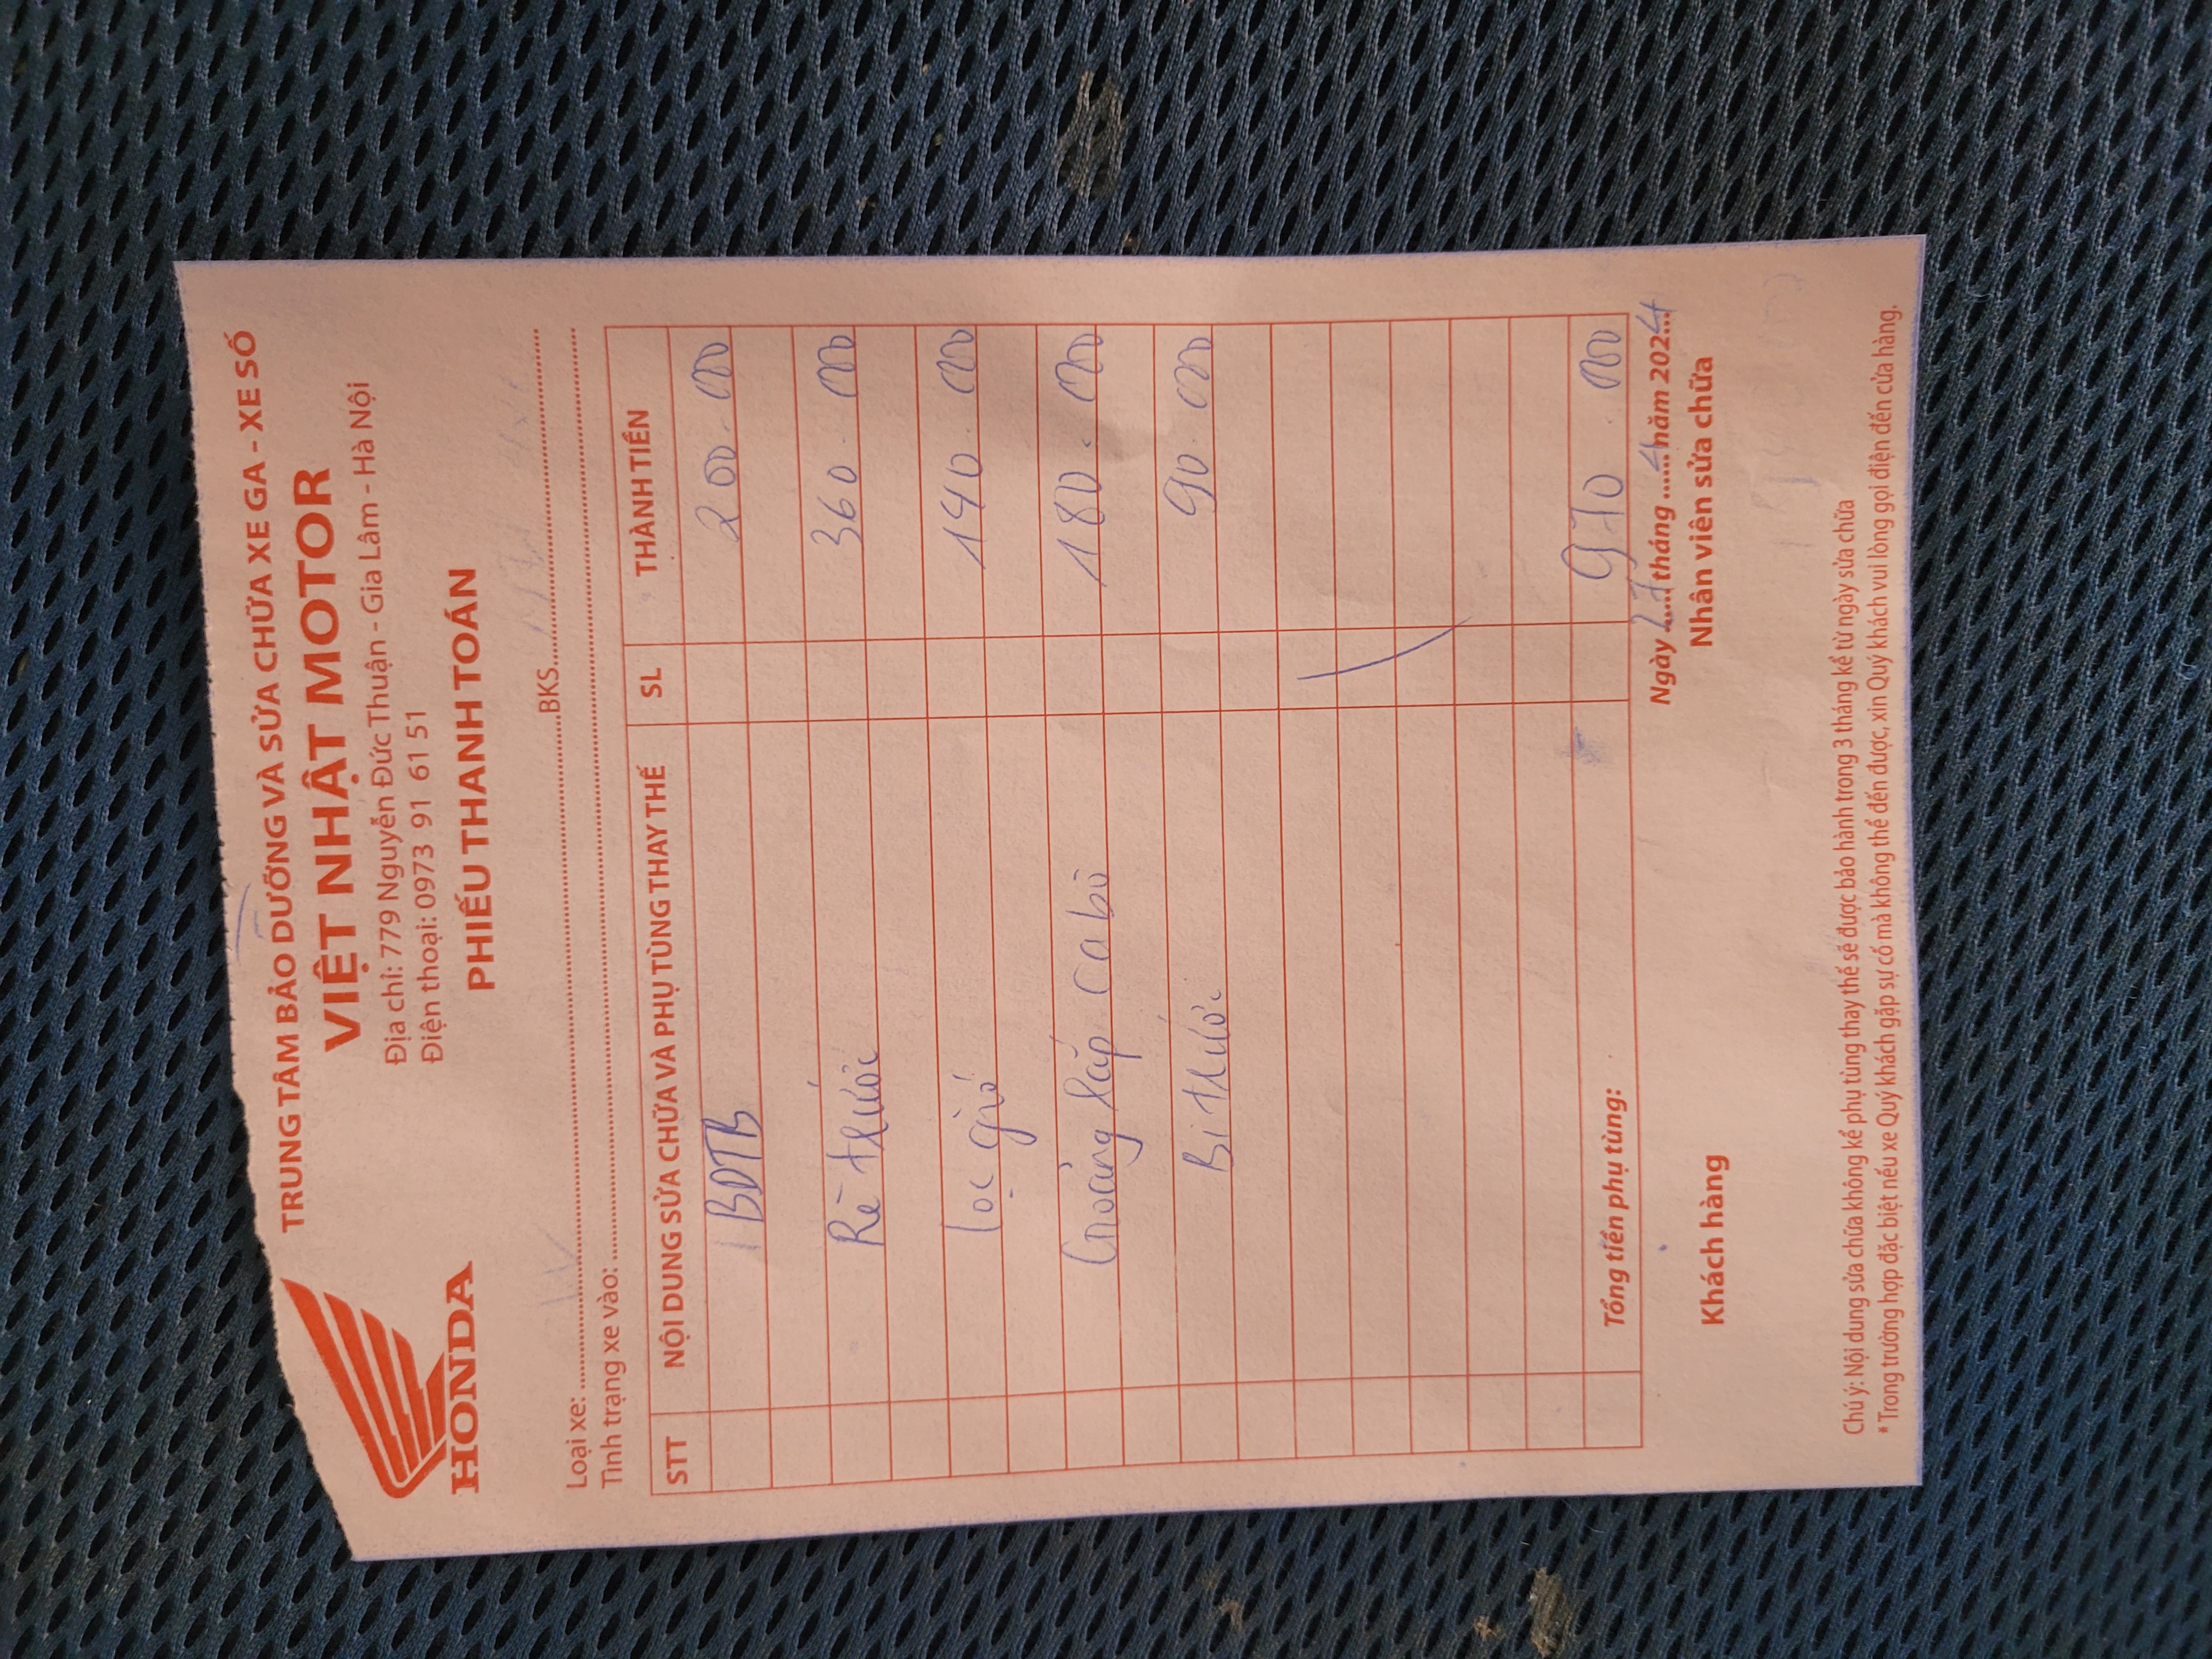 TRUNG TÂM BẢO DƯỠNG VÀ SỬA CHỮA XE GA - XE SỐ
VIỆT NHẬT MOTOR
Địa chỉ: 779 Nguyễn Đức Thuận - Gia Lâm - Hà Nội
Điện thoại: 0973 91 61 51
HONDA
PHIẾU THANH TOÁN
Loại xe: BKS
Tình trạng xe vào:
STT NỘI DUNG SỬA CHỮA VÀ PHỤ TÙNG THAY THẾ SL THÀNH TIỀN
BDTB 200.000
Rè trước 360.000
lọc gió 140.000
Gioăng lắp cabô 180.000
Bi trước 90.000
Tổng tiền phụ tùng: 970.000
Ngày 27 tháng 4 năm 2024
Khách hàng Nhân viên sửa chữa
Chú ý: Nội dung sửa chữa không kể phụ tùng thay thế sẽ được bảo hành trong 3 tháng kể từ ngày sửa chữa
* Trong trường hợp đặc biệt nếu xe Quý khách gặp sự cố mà không thể đến được, xin Quý khách vui lòng gọi điện đến cửa hàng.